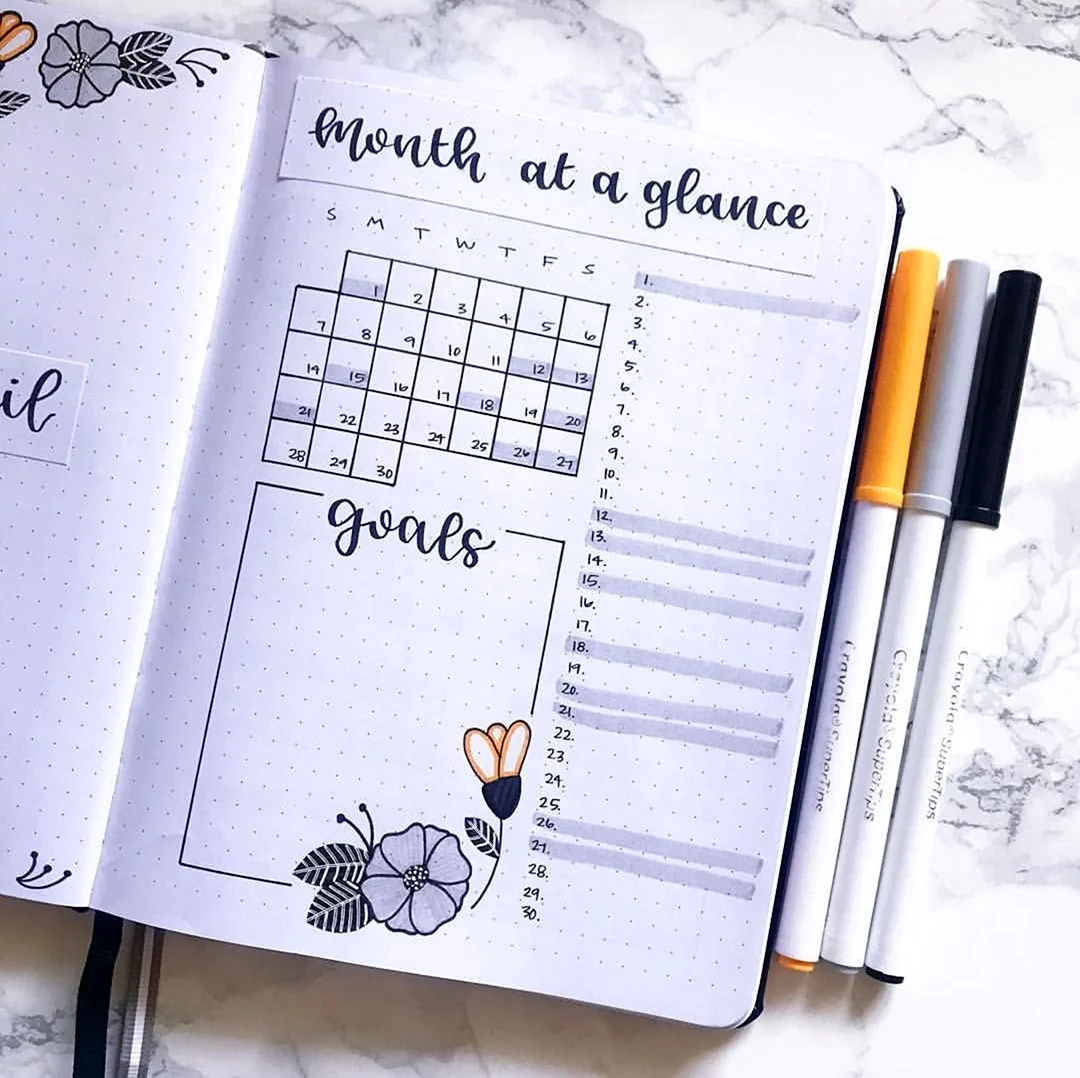 il
month at a glance
S M T W T F S
1 2 3 4 5 6
7 8 9 10 11 12 13
14 15 16 17 18 19 20
21 22 23 24 25 26 27
28 29 30
goals
1.
2.
3.
4.
5.
6.
7.
8.
9.
10.
11.
12.
13.
14.
15.
16.
17.
18.
19.
20.
21.
22.
23.
24.
25.
26.
27.
28.
29.
30.
Crayola® SuperTips
Crayola® SuperTips
Crayola® SuperTips